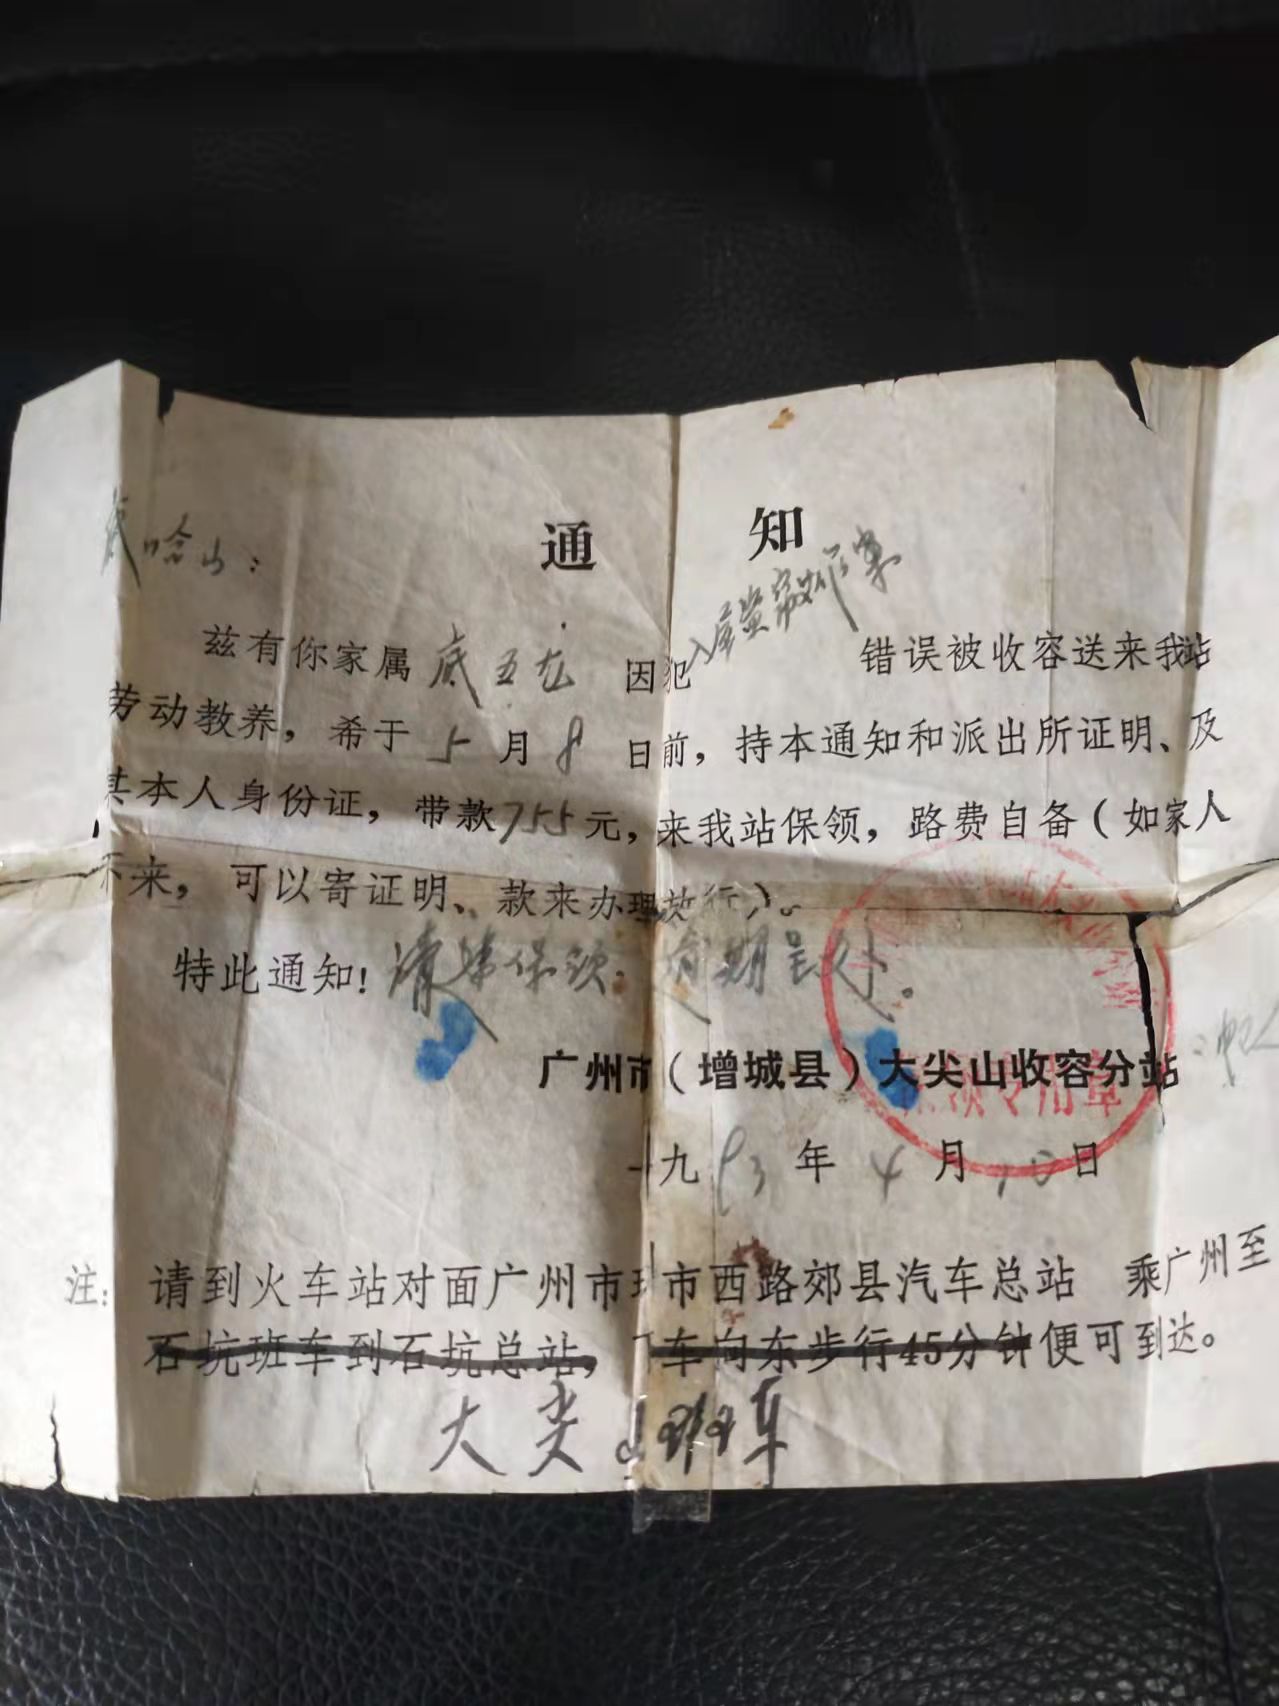 通 知
底哈山：
兹有你家属 底五龙 因犯入屋盗窃作案 错误被收容送来我站
劳动教养，希于 5 月 8 日前，持本通知和派出所证明、及
其本人身份证，带款755元，来我站保领，路费自备（如家人
不来，可以寄证明、款来办理放行）。
特此通知！请来保领。逾期另处。
广州市（增城县）大尖山收容分站
保领专用章
一九93年4月10日
注：请到火车站对面广州市环市西路郊县汽车总站 乘广州至
石坑班车到石坑总站，下车向东步行45分钟便可到达。
大尖山班车